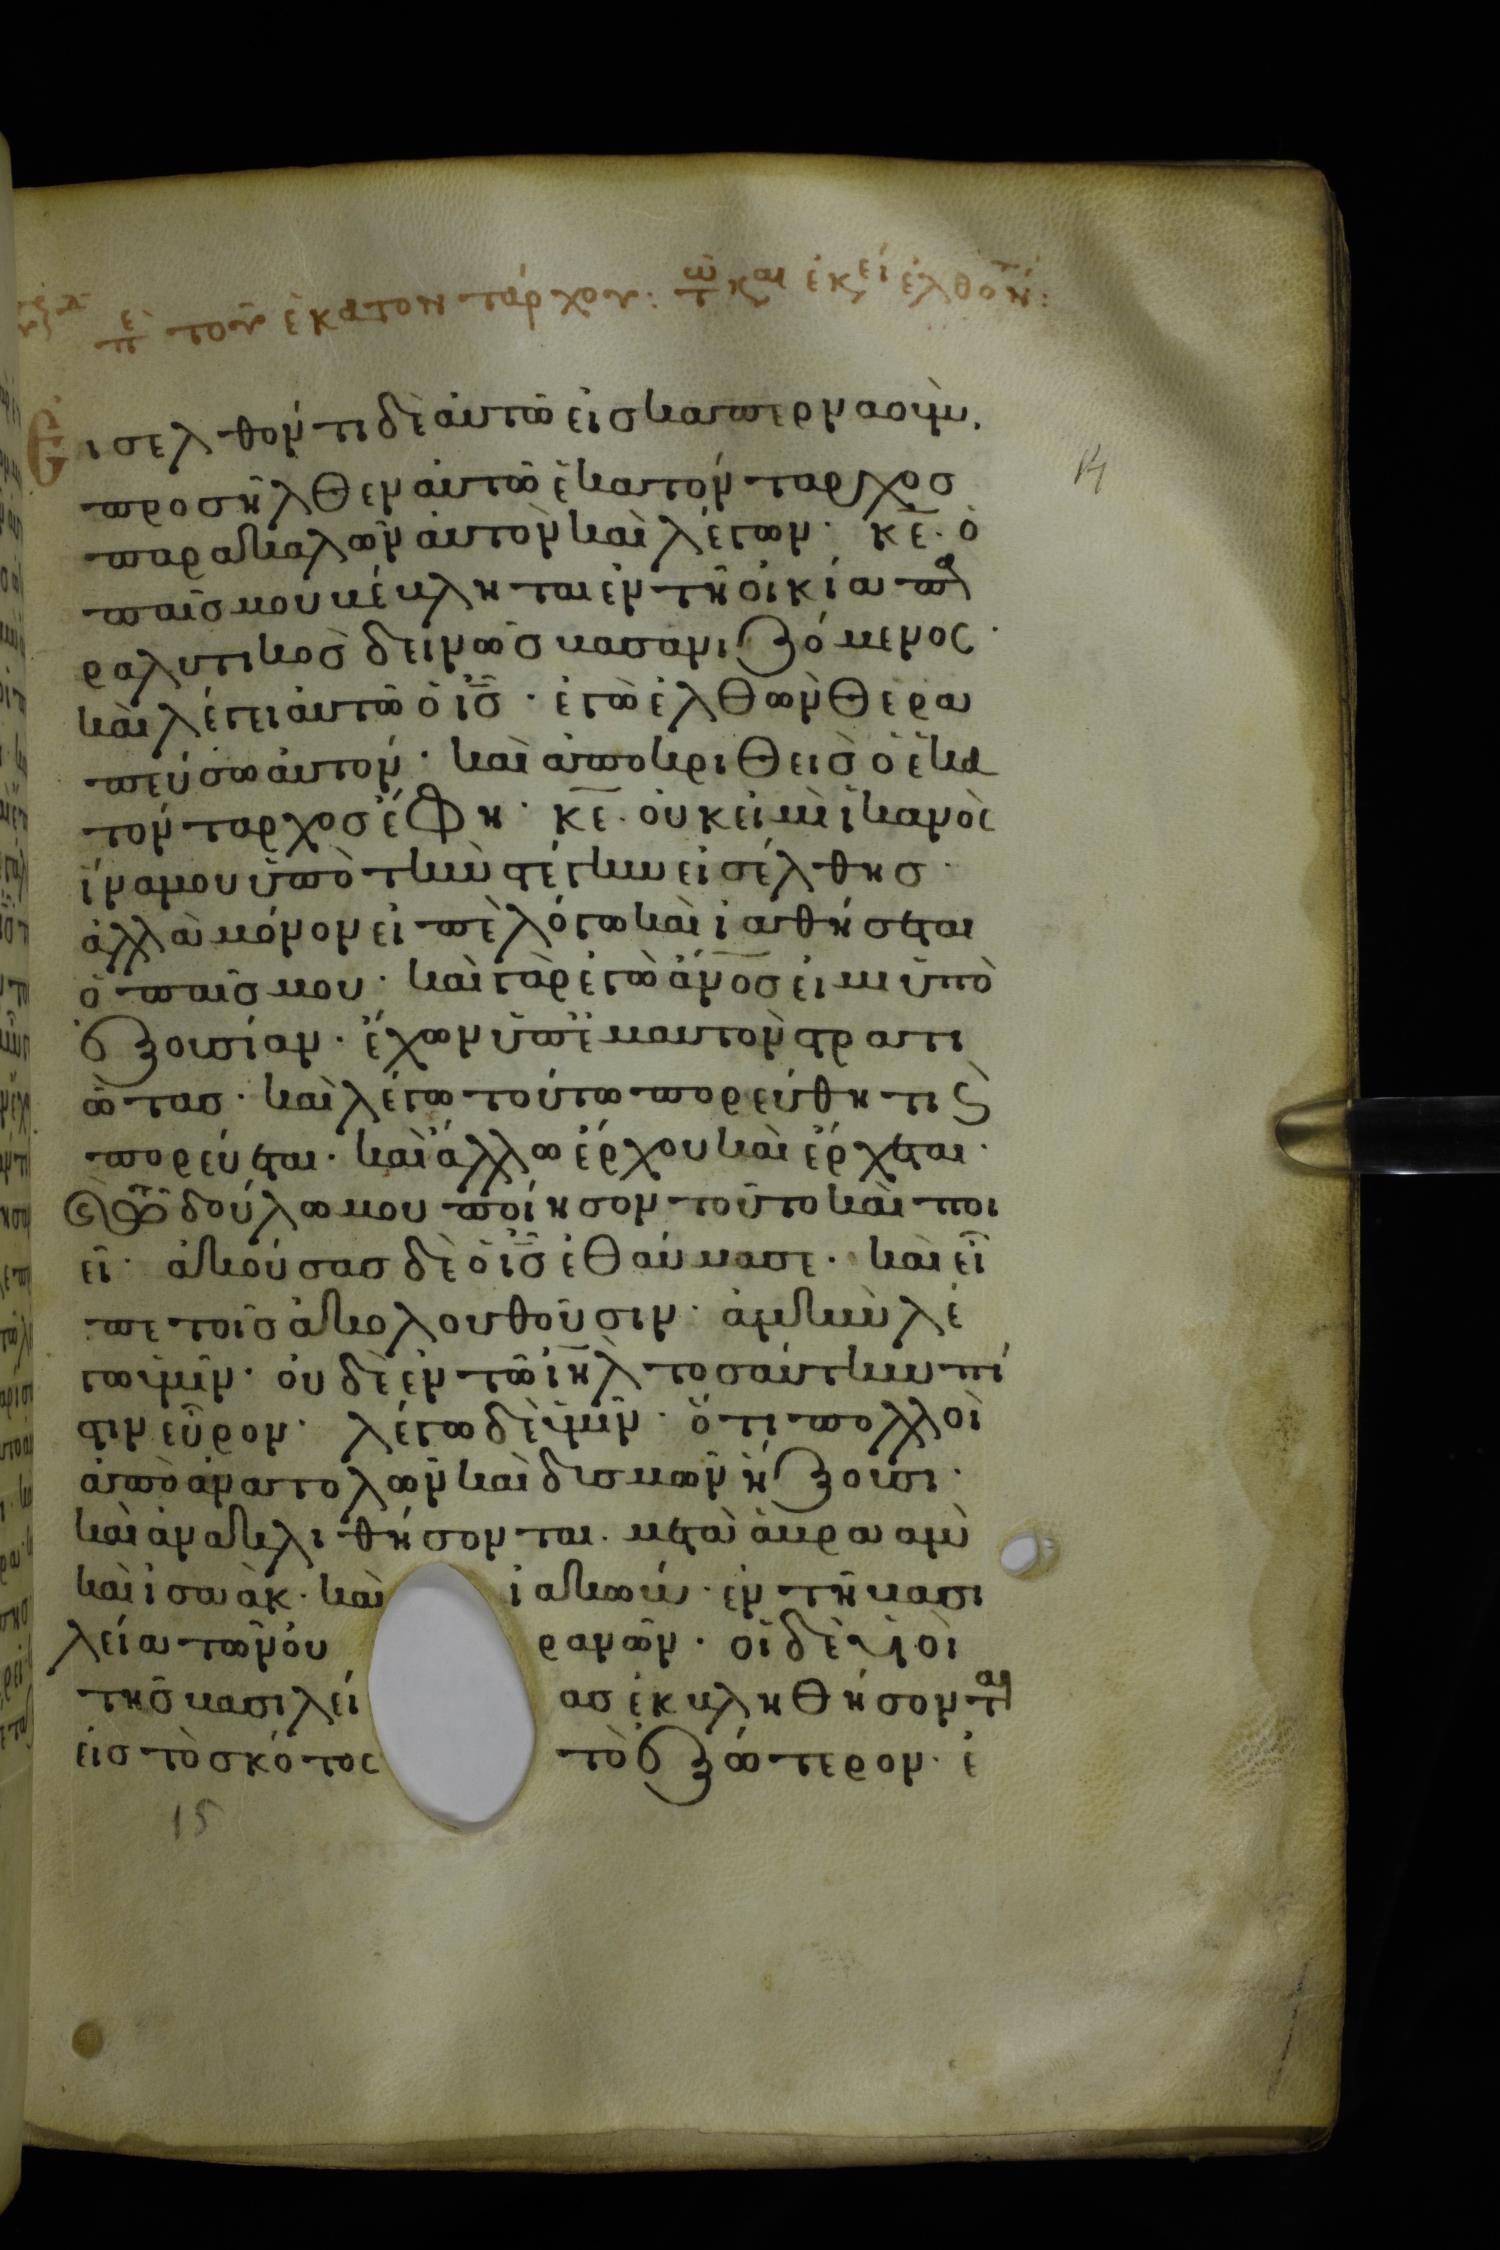 περὶ τοῦ ἑκατοντάρχου: τῶ καὶ ἐκεῖ ἐλθόντι:
Εισελθόντι δὲ ἀυτῶ εἰσ καπερναοὺμ,
προσῆλθεν ἀυτῶ ἑκατόνταρχοσ
παρακαλῶν ἀυτὸν καὶ λέγων· κ̅ε̅· ὁ
παῖσ μου βέβληται ἐν τῆ οἰκία πα
ραλυτικὸσ δεινῶσ βασανιζόμενος·
καὶ λέγει ἀυτῶ ὁ ι̅σ̅· ἐγὼ ἐλθὼν θερα
πεύσω ἀυτόν· καὶ ἀποκριθεὶσ ὁ ἑκα
τόνταρχοσ ἔφη· κ̅ε̅· οὐκ εἰμὶ ἱκανὸς
ἵνα μου ὑπὸ τὴν στέγην εἰσέλθησ·
ἀλλὰ μόνον εἰπὲ λόγω καὶ ἰαθήσεται
ὁ παῖσ μου· καὶ γὰρ ἐγὼ ἄν̅ο̅σ̅ εἰμι ὑπὸ
ἐξουσίαν· ἔχων ὑπ' ἐμαυτὸν στρατι
ώτασ· καὶ λέγω τούτω πορεύθητι ϗ
πορεύεται· καὶ ἄλλω ἔρχου καὶ ἔρχεται·
ϗ τῶ δούλω μου ποίησον τοῦτο καὶ ποι
εῖ· ἀκούσασ δὲ ὁ ι̅σ̅ ἐθαύμασε· καὶ εἶ
πε τοῖσ ἀκολουθοῦσιν· ἀμὴν λέ
γω ὑμῖν· οὐδὲ ἐν τῶ ἰη̅λ̅ τοσαύτην πί
στιν εὗρον· λέγω δὲ ὑμῖν· ὅτι πολλοὶ
ἀπὸ ἀνατολῶν καὶ δυσμῶν ἥξουσι·
καὶ ἀνακλιθήσονται· μετὰ ἀβραὰμ
καὶ ἰσαὰκ· καὶ ἰακώβ· ἐν τῆ βασι
λεία τῶν οὐρανῶν· οἱ δὲ υἱοὶ
τῆσ βασιλείασ ἐκβληθήσονται
εἰσ τὸ σκότος τὸ ἐξώτερον· ἐ
15